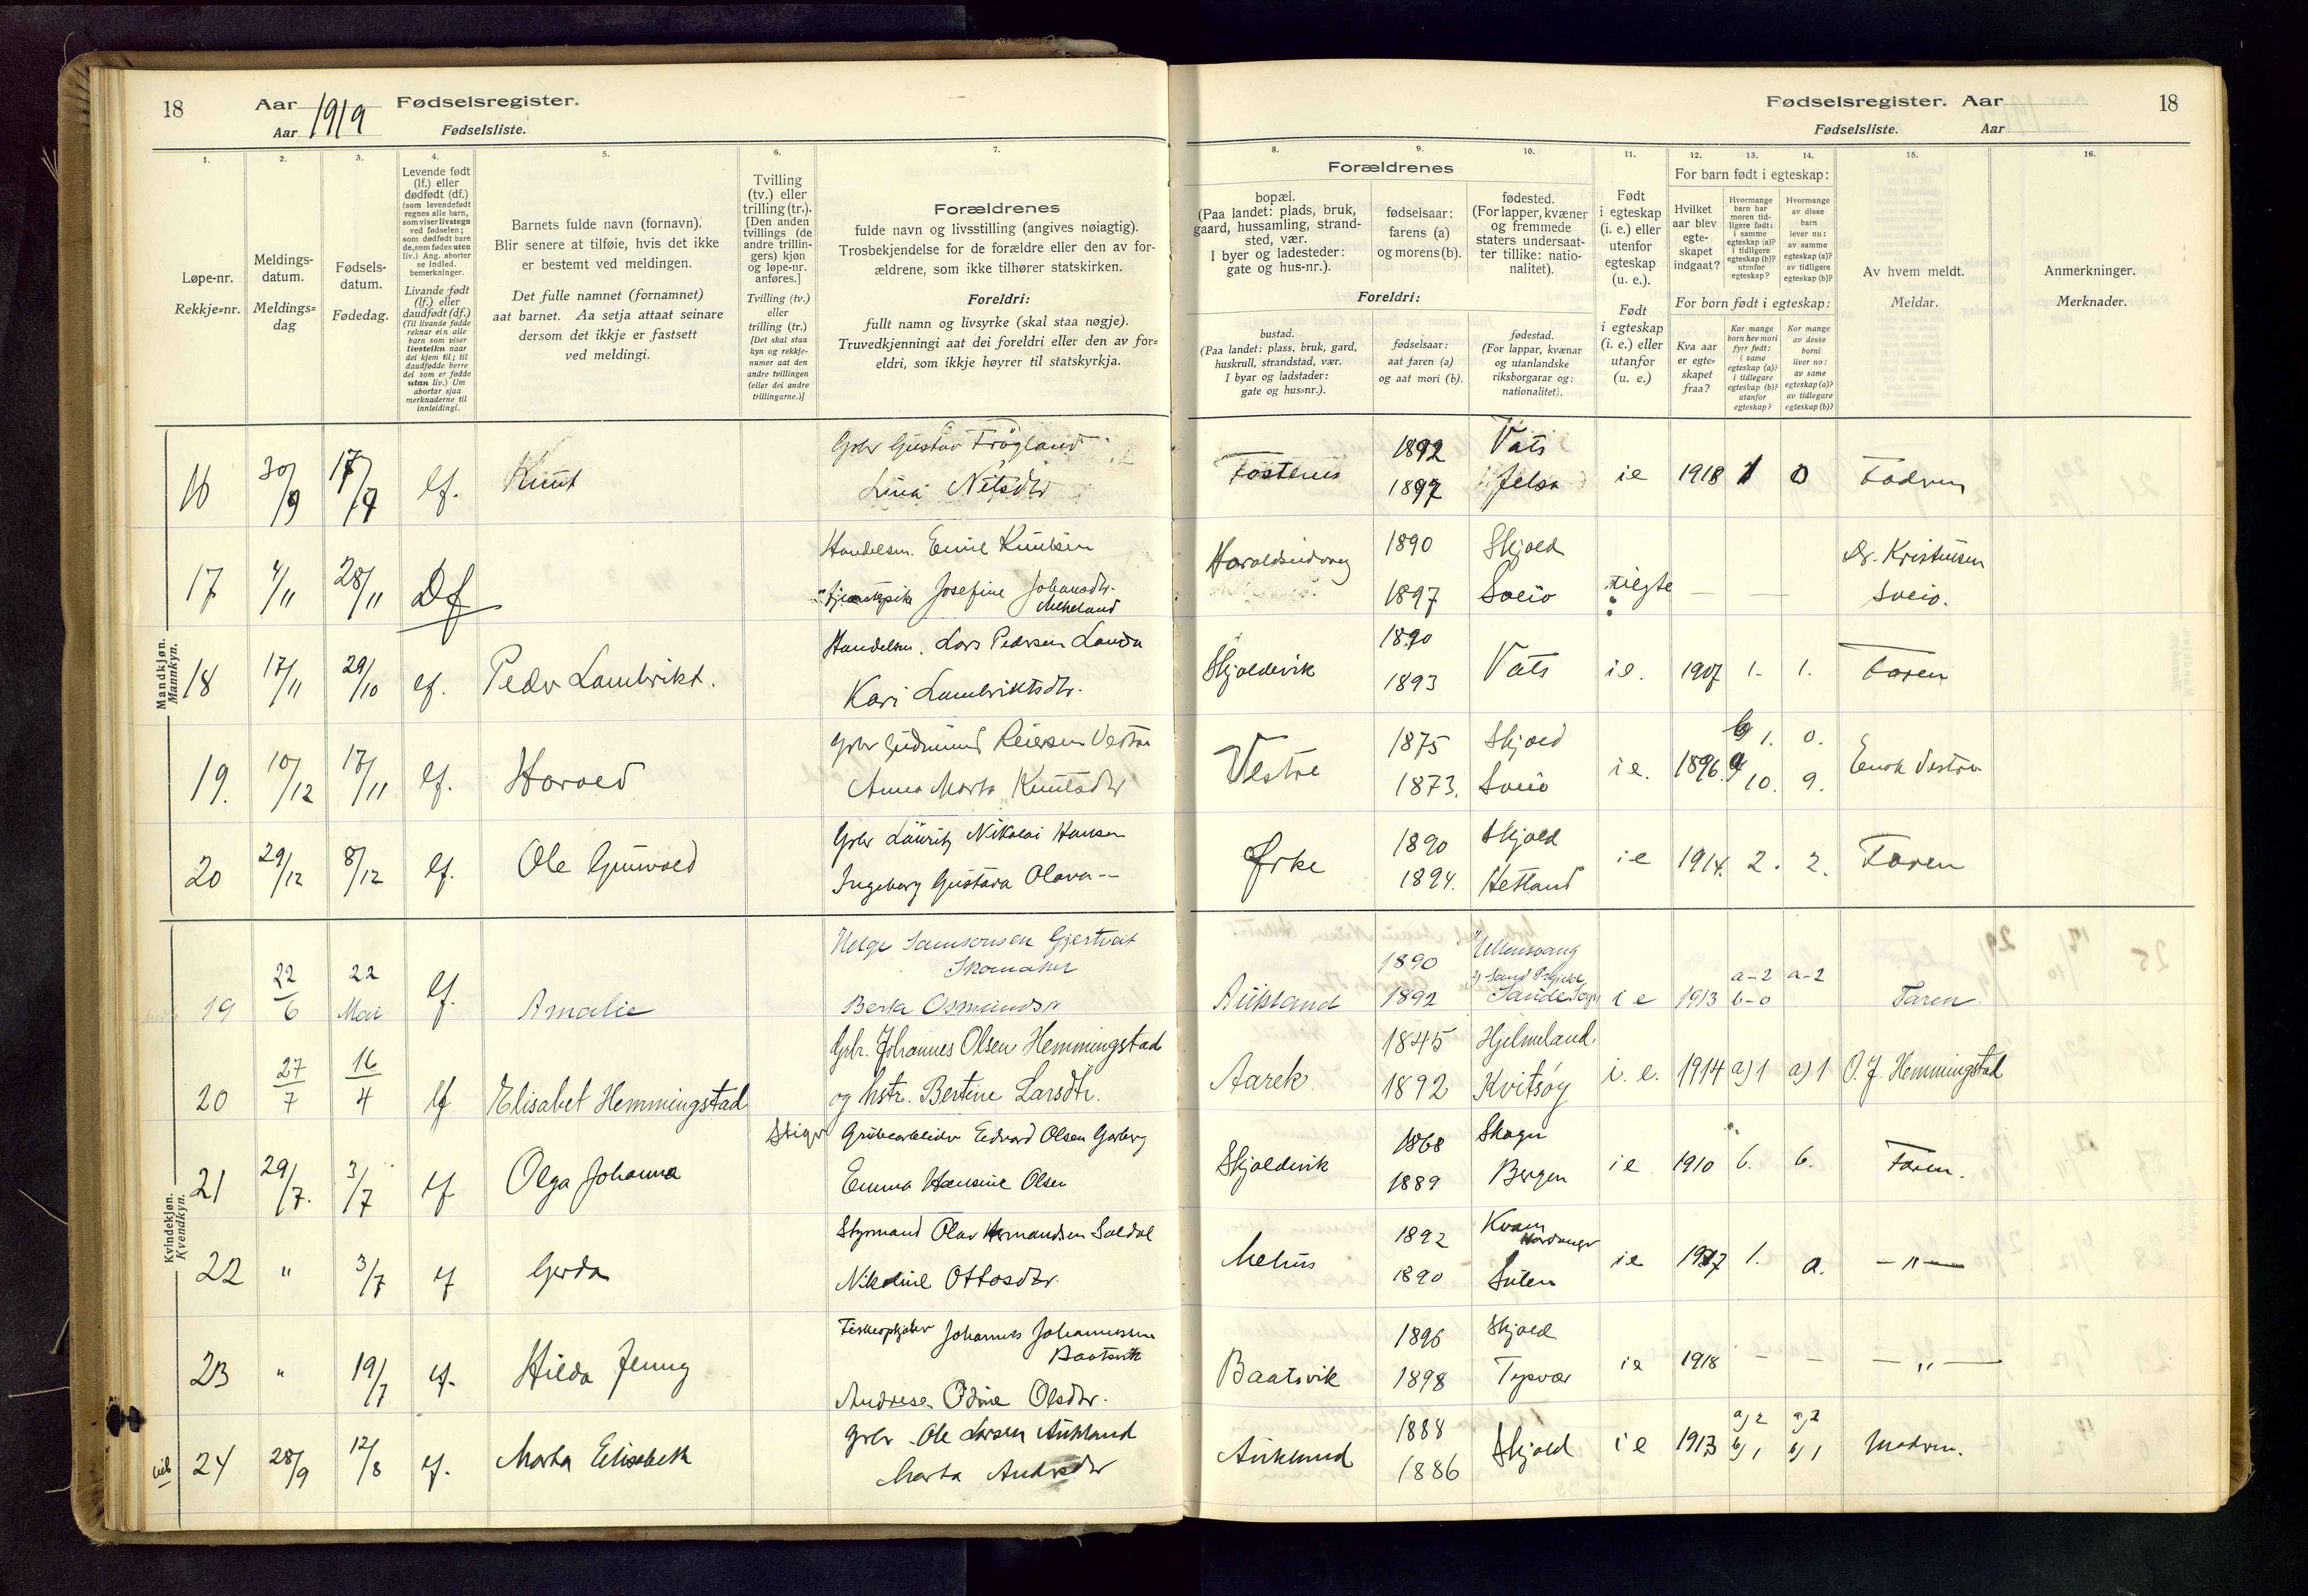 18 Aar 1919 Fødselsregister.
Aar Fødselsliste.
Fødselsregister. Aar 18
Fødselsliste. Aar
1. 2. 3. 4. 5. 6. 7.
Løpe-nr.
Rekkje=nr.
Meldings-
datum.
Meldings=
dag
Fødsels-
datum.
Fødedag.
Levende født
(lf.) eller
dødfødt (df.)
(som levendefødt
regnes alle barn,
som viser livstegn
ved fødselen;
som dødfødt bare
de, som fødes uten
liv.) Ang. aborter
se indled.
bemerkninger.
Livande født
(lf.) eller
daudfødt (df.)
(Til livande fødde
reknar ein alle
barn som viser
livsteikn naar
dei kjem til; til
daudfødde berre
dei som er fødde
utan liv.) Um
abortar sjaa
merknaderne til
innleidingi.
Barnets fulde navn (fornavn).
Blir senere at tilføie, hvis det ikke
er bestemt ved meldingen.
Det fulle namnet (fornamnet)
aat barnet. Aa setja attaat seinare
dersom det ikkje er fastsett
ved meldingi.
Tvilling
(tv.) eller
trilling (tr.).
[Den anden
tvillings (de
andre trillin-
gers) kjøn
og løpe-nr.
anføres.]
Tvilling (tv.)
eller
trilling (tr.)
[Det skal staa
kyn og rekkje-
numer aat den
andre tvillingen
(eller dei andre
trillingarne.)]
Forældrenes
fulde navn og livsstilling (angives nøiagtig).
Trosbekjendelse for de forældre eller den av for-
ældrene, som ikke tilhører statskirken.
Foreldri:
fullt namn og livsyrke (skal staa nøgje).
Truvedkjenningi aat dei foreldri eller den av for=
eldri, som ikkje høyrer til statskyrkja.
8. 9. 10. 11. 12. 13. 14. 15. 16.
Forældrenes
bopæl.
(Paa landet: plads, bruk,
gaard, hussamling, strand-
sted, vær.
I byer og ladesteder:
gate og hus-nr.).
fødselsaar:
farens (a)
og morens (b).
fødested.
(For lapper, kvæner
og fremmede
staters undersaat-
ter tillike: natio-
nalitet).
Foreldri:
bustad.
(Paa landet: plass, bruk, gard,
huskrull, strandstad, vær.
I byar og ladstader:
gate og hus=nr.).
fødselsaar:
aat faren (a)
og aat mori (b).
fødestad.
(For lappar, kvænar
og utanlandske
riksborgarar og:
nationalitet).
Født
i egteskap
(i. e.) eller
utenfor
egteskap
(u. e.).
Født
i egteskap
(i. e.) eller
utanfor
(u. e.)
For barn født i egteskap:
Hvilket
aar blev
egte-
skapet
indgaat?
Hvormange
barn har
moren tid-
ligere født:
i samme
egteskap (a)?
i tidligere
egteskap (b)?
utenfor
egteskap?
Hvormange
av disse
barn
lever nu:
av samme
egteskap (a)?
av tidligere
egteskap (b)?
For born født i egteskap:
Kva aar
er egte=
skapet
fraa?
Kor mange
born hev mori
fyrr født:
i same
egteskap (a)?
i tidlegare
egteskap (b)?
utanfor
egteskap?
Kor mange
av desse
borni
liver no:
av same
egteskap (a)?
av tidlegare
egteskap (b)?
Av hvem meldt.
Meldar.
Anmerkninger.
Merknader.
Mandkjøn.
Mannkyn.
16 30/9 17/7 lf. Knut Gbr Gustav Frøgland
Lina Nilsdtr
1892 Vats
1897 Jelsa ie 1918 1 0 Fadren
17 4/11 28/11 Df Handelsm. Emil Knutsen
Josefine Johansdtr.
1890 Skjold
1897 Sveio uegte — — Dr. Kristensen
Sveio.
18 17/11 29/10 lf. Peder Lambrikt. Handelsm. Lars Pedersen Landa
Kari Lambriktsdtr.
Skjoldevik 1890
1893 Vats ie. 1907 1. 1. Faren
19. 10/12 17/11 lf. Harald Gbr Gudmund Reiersen Vestre
Anna Marta Knutsdtr
Vestre 1875 Skjold
1873. Sveio ie. 1896. b 1. 0.
a 10. 9. Enok Vestre
20 29/12 8/12 lf. Ole Gunvald Gbr Lauritz Nikolai Hansen
Ingeborg Gustava Olava --
Ørke 1890 Skjold
1894. Hetland ie 1914. 2. 2. Faren
Kvindekjøn.
Kvendkyn.
19 22/6 22 Mai lf. Amalie Helge Samsonsen Gjertveit
Skomaker
Berta Osmundsdtr
Aukland 1890 Ullensvang
1892 Saude Sogn ie 1913 a-2 b-0 a-2 Faren
20 27/7 16/4 lf Elisabet Hemmingstad Gbr. Johannes Olsen Hemmingstad
og hstr. Bertine Larsdtr.
Aarek. 1845 Hjelmeland
1892 Kvitsøy i. e. 1914 a) 1 a) 1 O. J. Hemmingstad
21 29/7. 3/7 lf Olga Johanna Stiger Grubearbeider Edvard Olsen Garberg
Emma Hansine Olsen
Skjoldevik 1868 Skogn
1889 Bergen ie 1910 6. 6. Faren.
22 " 3/7 lf Gerda Styrmand Olav Hermandsen Soldal
Nikoline Ottosdtr.
Mehus 1892 Kvam
Hardanger
1890 ie 1917 1. 0. — " —
23 " 19/7 lf. Hilda Jenny Johannes Johannessen
Baatsvik
Andrese Odine Olsdtr.
Baatsvik 1896 Skjold
1898 Tysvær ie 1918 — — — " —
vib 24 28/9 12/8 lf. Marta Elisabeth Gbr Ole Larsen Aukland
Marta Andrsdtr
Aukland 1888
1886 Skjold ie 1913 a) 2 b) 1 a) 2 b) 1 Modren.